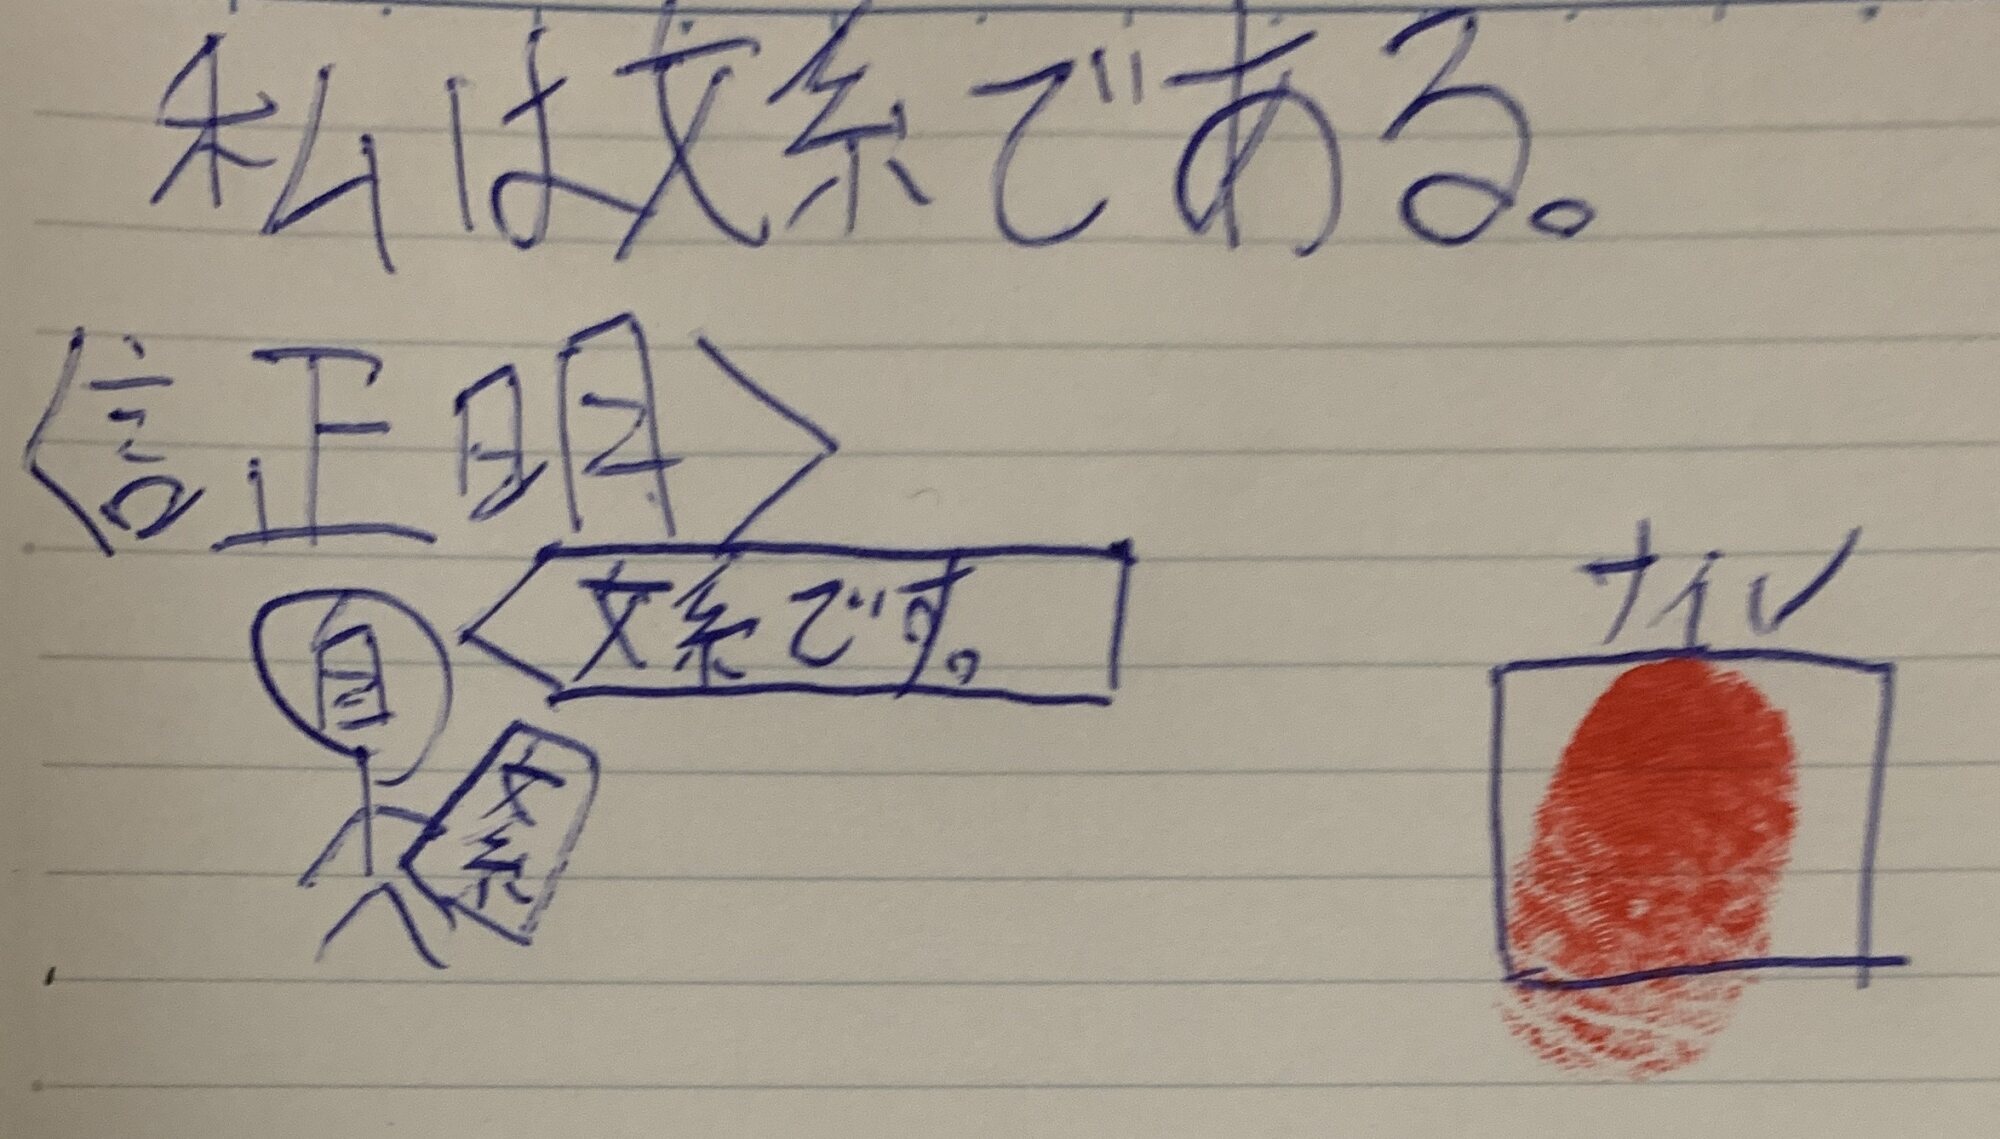 私は文系である。
〈証明〉
文系です。
自
文系
ナイル